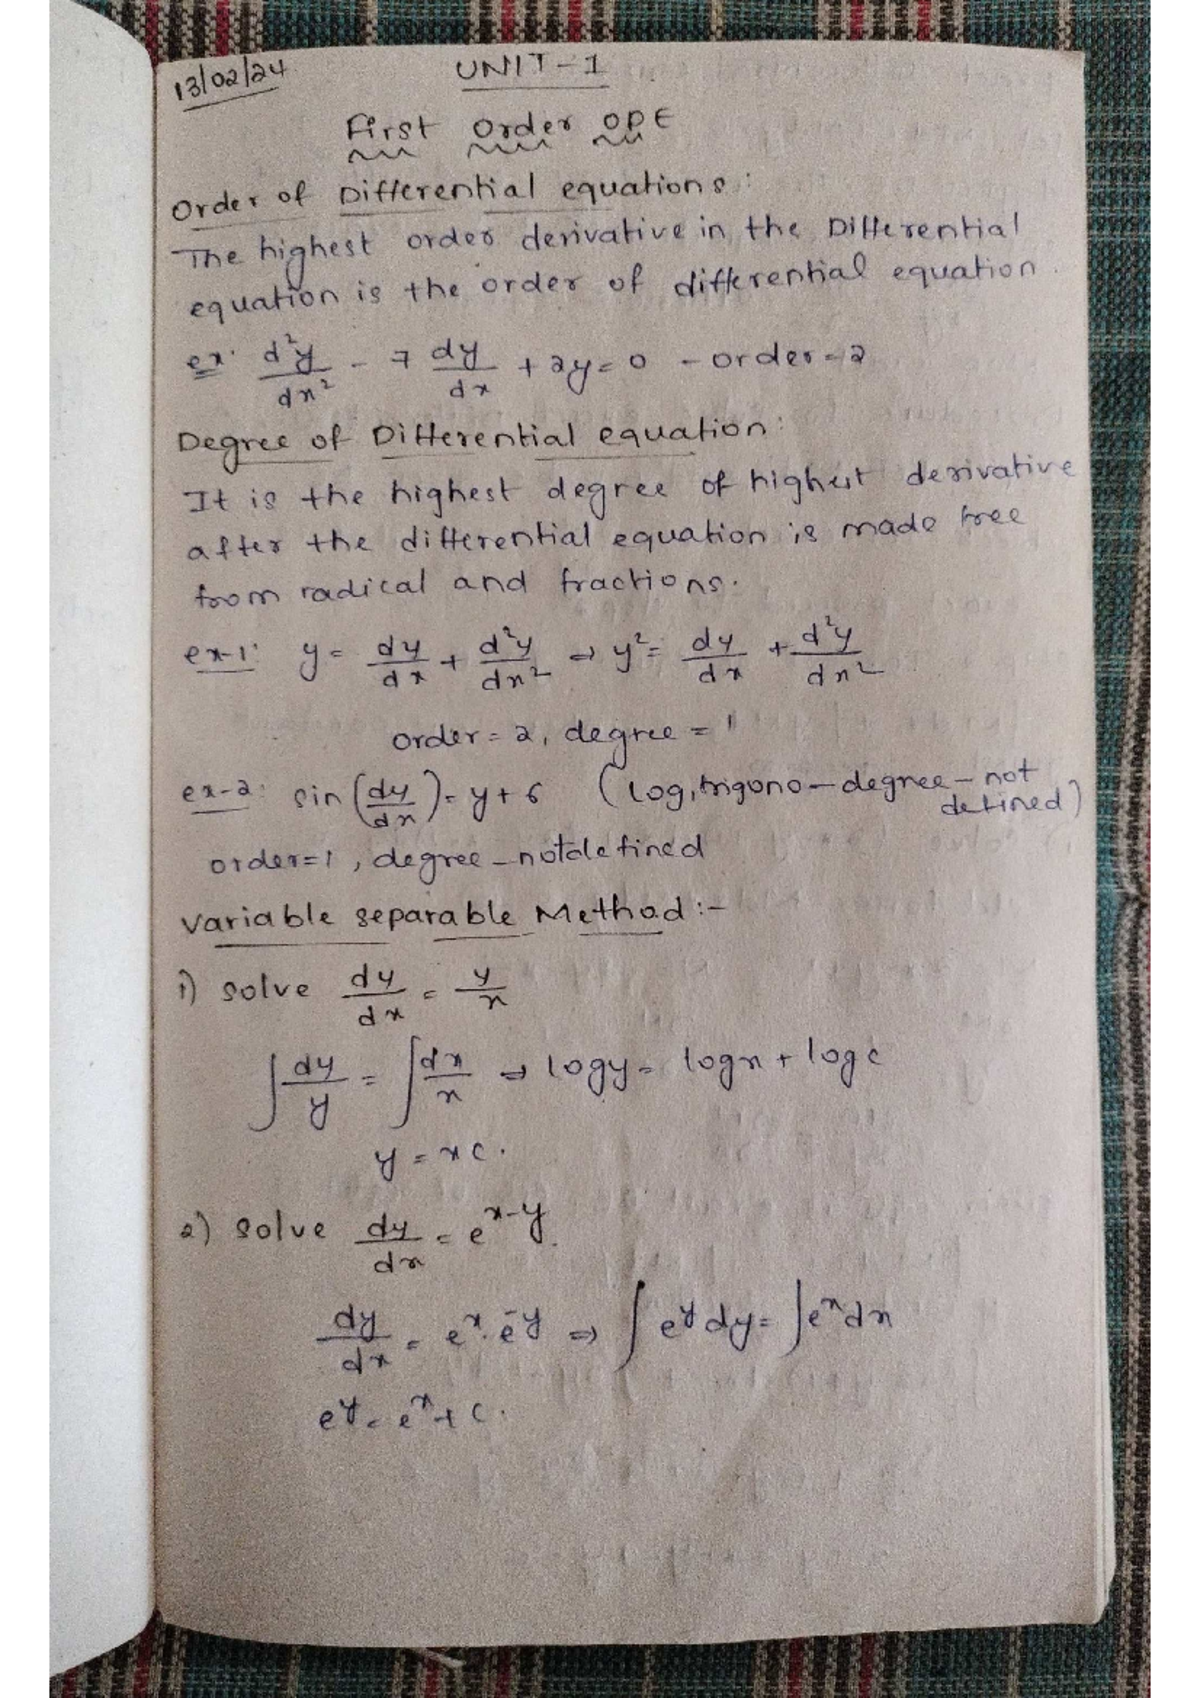 13/02/24
UNIT-1
First Order ODE
Order of Differential equations:
The highest order derivative in the Differential
equation is the order of differential equation.
ex: d²y/dx² - 7 dy/dx + 2y = 0 - order = 2
Degree of Differential equation:
It is the highest degree of highest derivative
after the differential equation is made free
from radical and fractions.
ex-1: y = dy/dx + d²y/dx² ⇒ y² = dy/dx + d²y/dx²
order = 2, degree = 1
ex-2: sin(dy/dx) = y + 6 (log, trigono - degree - not defined)
order = 1, degree - not defined
Variable separable Method :-
1) solve dy/dx = y/x
∫dy/y = ∫dx/x ⇒ logy = logx + logc
y = xc.
2) solve dy/dx = e^(x-y).
dy/dx = e^x . e^-y ⇒ ∫e^y dy = ∫e^x dx
e^y = e^x + c.